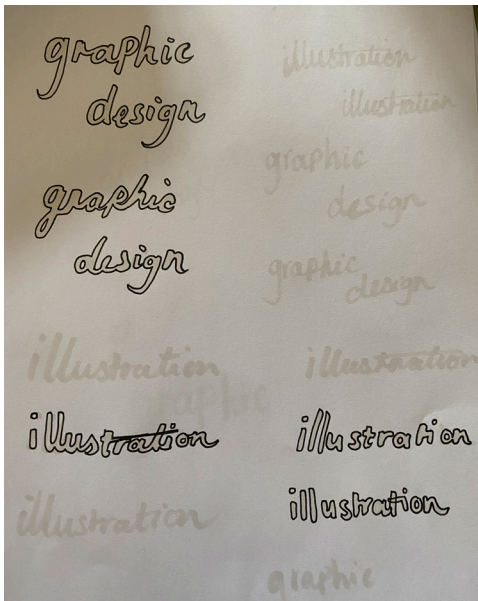 graphic
design
graphic
design
illustration
illustration
illustration
illustration
illustration
graphic
design
graphic
design
illustration
illustration
illustration
graphic
graphic